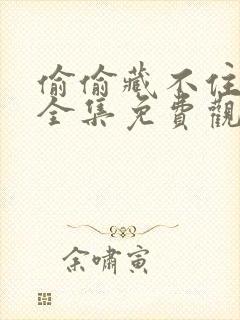 偷偷藏不住
全集免費觀
余嘯寅